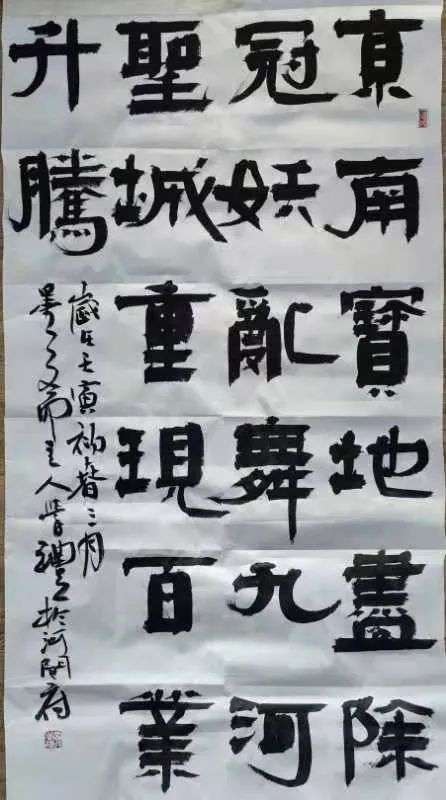 京南寶地盡除
冠妖亂舞九河
聖城重現百業
升騰
歲在壬寅初春三月
墨人於河間府